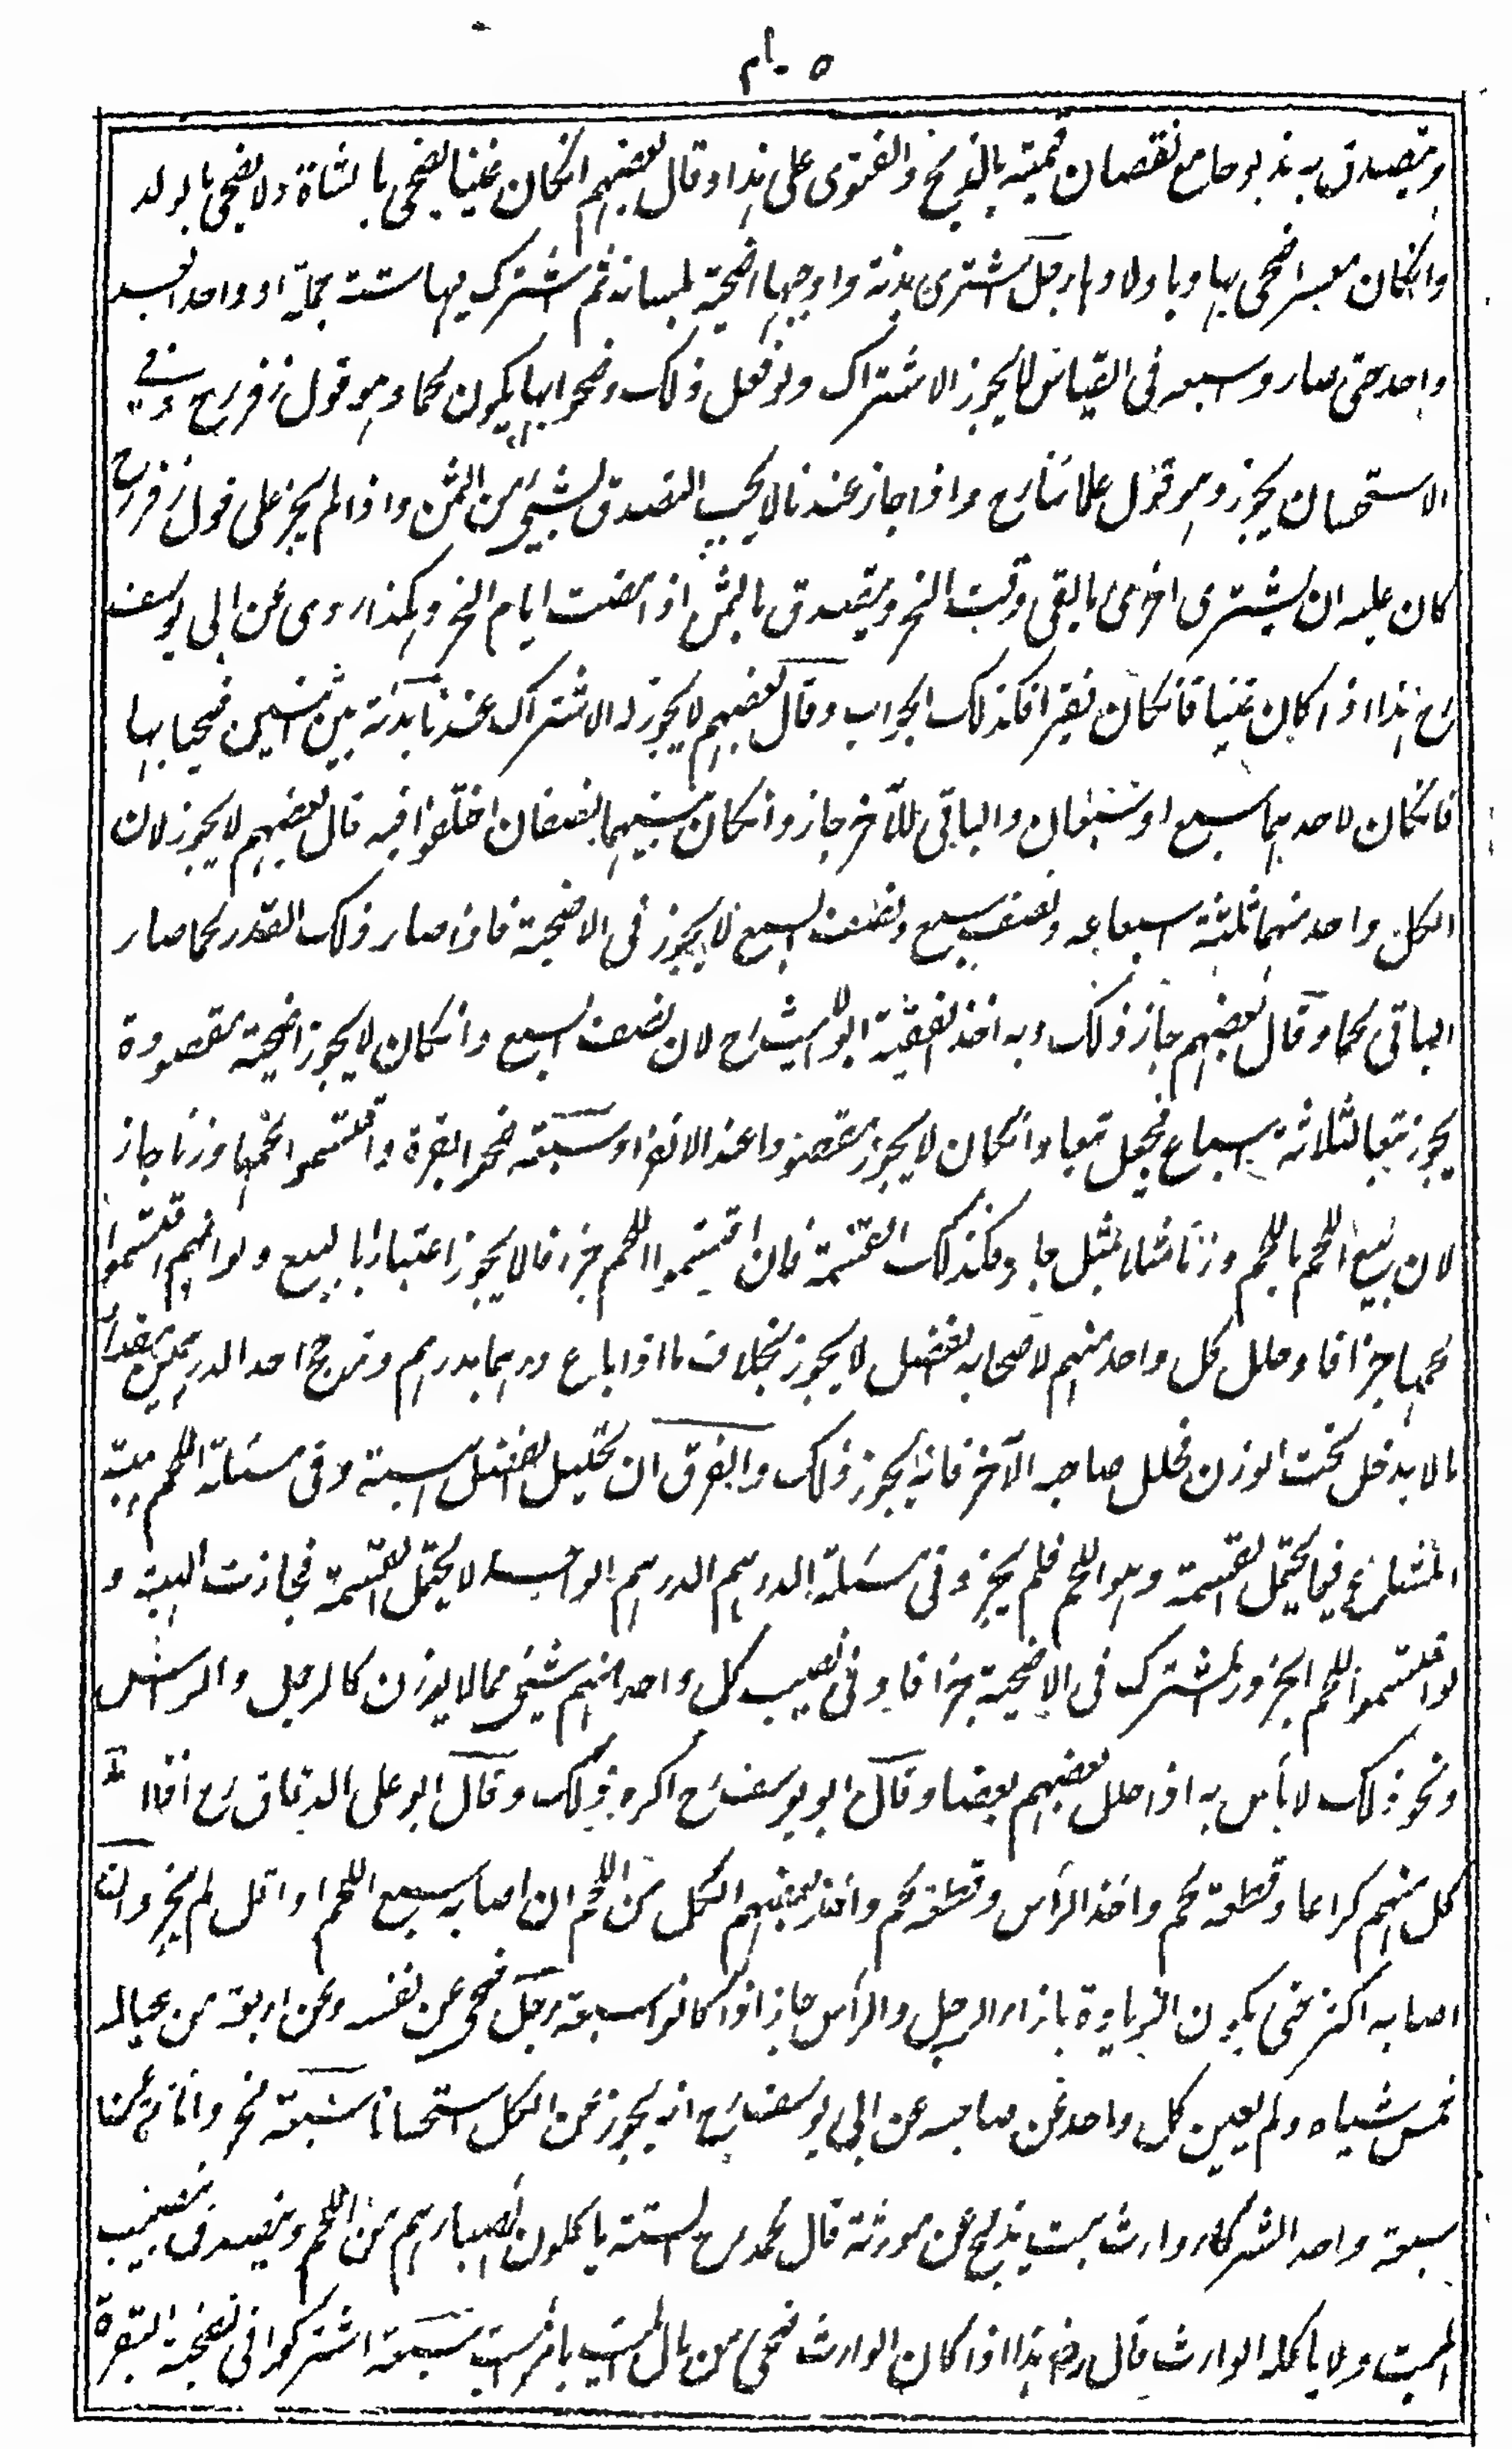 ويتصدق به مذبوحا مع نقصان قيمته بالذبح والفتوى على هذا وقال بعضهم انكان غنيا يضحى بالشاة ولا يضحى بالولد
وانكان معسرا ضحى بها وباولادها رجل اشترى بدنة واوجبها اضحية بلسانه ثم اشترك فيها ستة جملة او واحدا بعد
واحد حتى صاروا سبعه فى القياس لا يجوز الاشتراك ولو فعل ذلك وضحوا بها يكون لحما وهو قول زفر رح وفى
الاستحسان يجوز وهو قول علمائنا رح واذا جاز عندنا لا يجب التصدق بشيئ من الثمن واذا لم يجز على قول زفر رح
كان عليه ان يشترى اخرى ما بقى وقت النحر ويتصدق بالثمن اذا مضت ايام النحر وهكذا روى عن ابى يوسف
رح هذا اذا كان غنيا فانكان فقيرا فكذلك الجواب وقال بعضهم لا يجوز له الاشتراك عندنا بدنة بين اثنين ضحيا بها
فانكان لاحدهما سبع او سبعان والباقى للآخر جاز وانكان بينهما نصفان اختلفوا فيه قال بعضهم لا يجوز لان
لكل واحد منهما ثلثة اسباعه ونصف سبع ونصف السبع لا يجوز فى الاضحية فاذا صار ذلك القدر لحما صار
الباقى لحما وقال بعضهم جاز ذلك وبه اخذ الفقيه ابو الليث رح لان نصف السبع وانكان لا يجوز اضحية مقصودة
يجوز تبعا لثلاثة اسباع فجعل تبعا وانكان لا يجوز مقصودا عند الانفراد سبعة ضحوا البقرة واقتسموا لحمها وزنا جاز
لان بيع اللحم باللحم وزنا مثلا بمثل جائز وكذلك القسمة فان اقتسموا اللحم جزافا لا يجوز اعتبارا بالبيع ولو انهم اقتسموا
لحمها جزافا وحلل كل واحد منهم لاصحابه الفضل لا يجوز بخلاف ما اذا باع درهما بدرهم وترجح احد الدرهمين مقدار
ما لا يدخل تحت الوزن فحلل صاحبه الآخر فانه يجوز ذلك والفرق ان تحليل الفضل هبة وفى مسئلة اللحم هبة
المشاع فيما يحتمل القسمة وهو اللحم فلم يجز وفى مسئلة الدرهم الدرهم الواحد لا يحتمل القسمة فجازت الهبة و
لو اقتسموا لحم الجزور المشترك فى الاضحية جزافا وفى نصيب كل واحد منهم شيئ مما لا يوزن كالرجل والراس
ونحو ذلك لا بأس به اذا حلل بعضهم بعضا وقال ابو يوسف رح اكره ذلك وقال ابو على الدقاق رح اذا اخذ
كل منهم كراعا وقطعة لحم واخذ الرأس وقطعة لحم واخذ بعضهم الكل من اللحم ان اصابه سبع اللحم او اقل لم يجز وان
اصابه اكثر حتى يكون الزيادة بازاء الرجل والرأس جاز اذا كانوا سبعة رجل ضحى عن نفسه وعن اربعة من عياله
خمس شياه ولم يعين كل واحد عن صاحبه عن ابى يوسف رح انه يجوز عن الكل استحسانا سبعة نحروا ناقة عن
سبعة واحد الشركاء وارث ميت يذبح عن مورثه قال محمد رح الستة ياكلون انصباءهم من اللحم ويتصدق بنصيب
الميت ولا ياكله الوارث قال رض هذا اذا كان الوارث ضحى من مال الميت بامر الميت سبعة اشتركوا فى تضحية البقرة